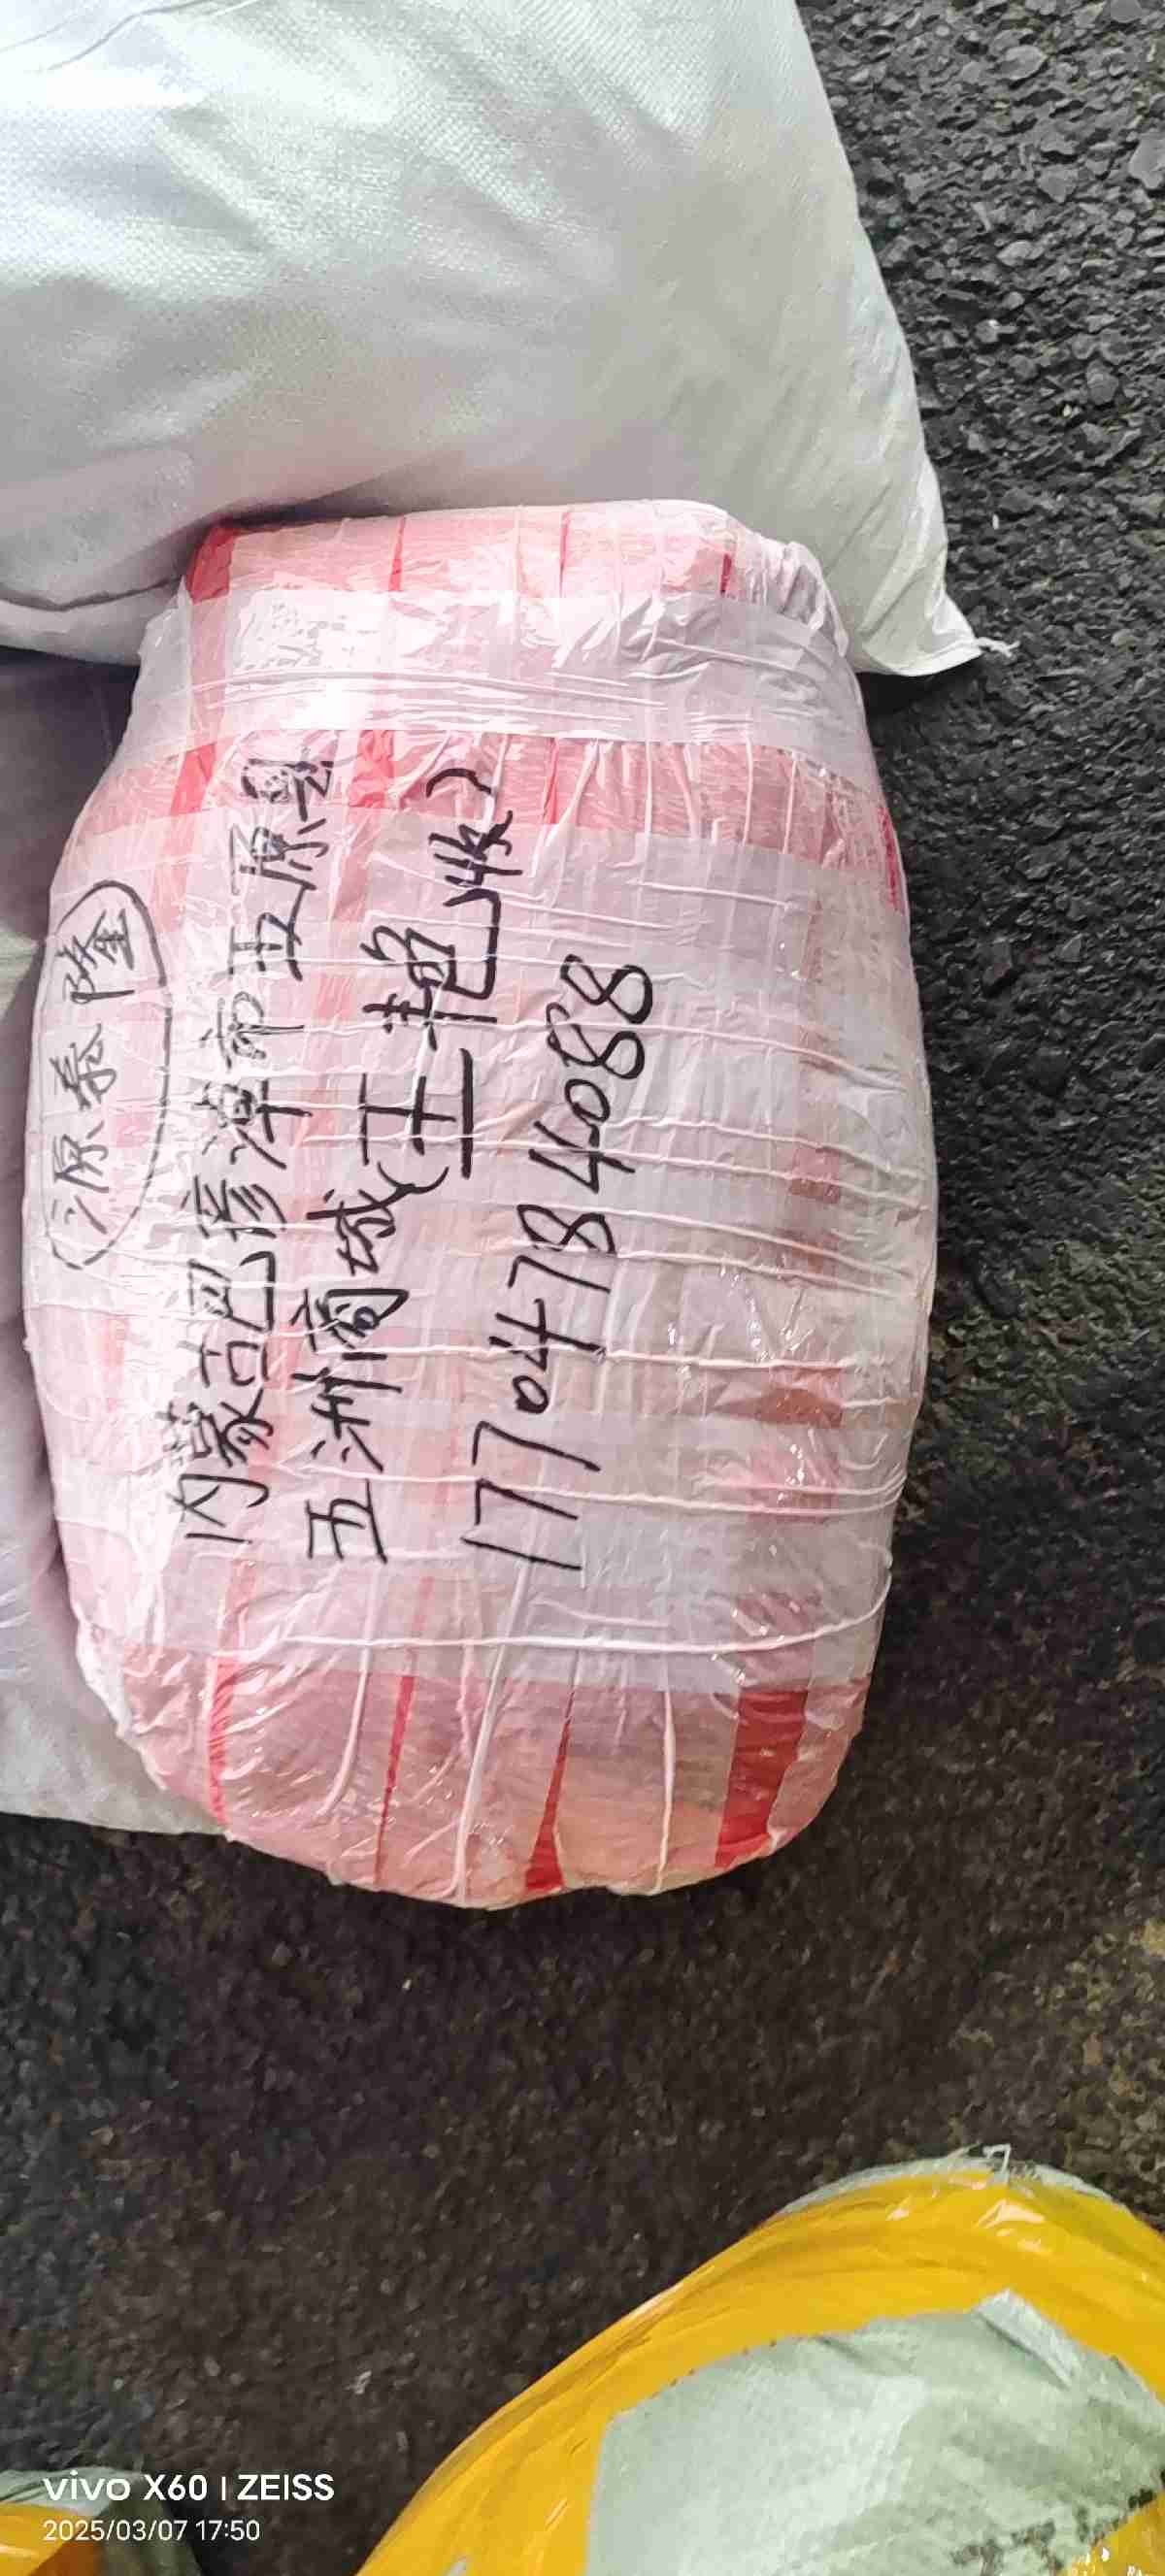 源泰隆
内蒙古巴彦淖市五原县
五洲商城(王艳
17704784088
vivo X60 | ZEISS
2025/03/07 17:50